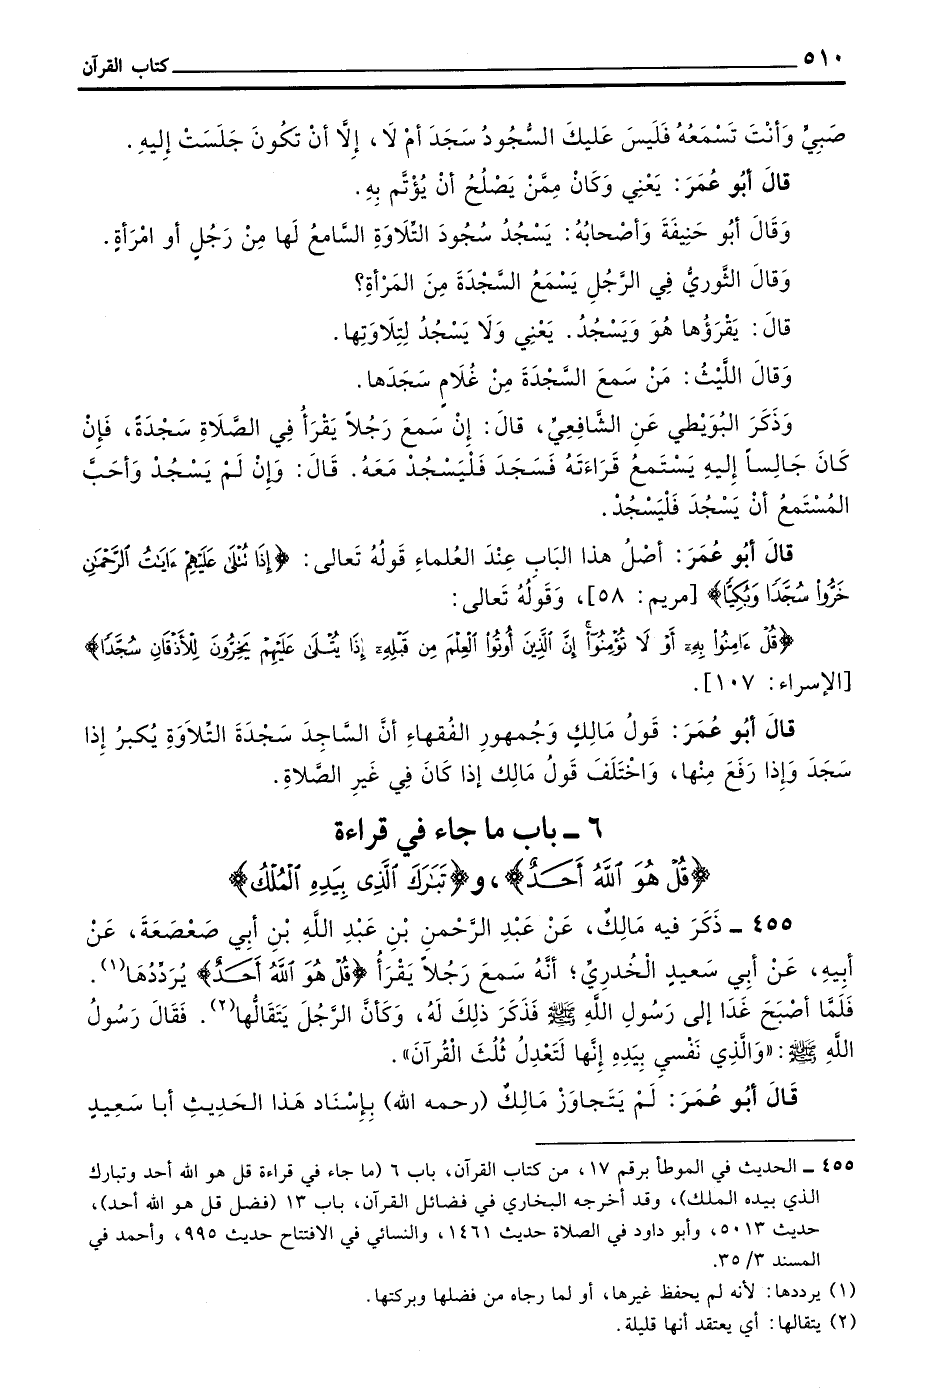 ٥١٠ كتاب القرآن
صَبِيٍّ وَأَنْتَ تَسْمَعُهُ فَلَيسَ عَليكَ السُّجُودُ سَجَدَ أمْ لَا، إلَّا أنْ تَكُونَ جَلَسَتْ إليهِ.
قالَ أبُو عُمَرَ: يَعْنِي وَكَانَ مِمَّنْ يَصْلُحُ أنْ يُؤْتَّم بِهِ.
وَقَالَ أبُو حَنِيفَةَ وَأصْحابُهُ: يَسْجُدُ سُجُودَ التِّلَاوَةِ السَّامعُ لَها مِنْ رَجُلٍ أو امْرَأةٍ.
وَقالَ الثَّوريُّ فِي الرَّجُلِ يَسْمَعُ السَّجْدَةَ مِنَ المَرْأةِ؟
قالَ: يَقْرَؤُها هُوَ وَيَسْجُدُ. يَعْنِي وَلَا يَسْجُدُ لِتِلَاوَتِها.
وَقالَ اللَّيْثُ: مَنْ سَمعَ السَّجْدَةَ مِنْ غُلَامٍ سَجَدَها.
وَذَكَرَ البُوَيْطي عَنِ الشَّافِعِيِّ، قالَ: إنْ سَمعَ رَجُلاً يَقْرَأُ فِي الصَّلَاةِ سَجْدَةً، فَإنْ
كَانَ جَالِساً إليهِ يَسْتَمعُ قَرَاءَتَهُ فَسَجَدَ فَلْيَسْجُدْ مَعَهُ. قَالَ: وَإنْ لَمْ يَسْجُدْ وَأحَبَّ
المُسْتَمعُ أنْ يَسْجُدَ فَلْيَسْجُدْ.
قالَ أبُو عُمَرَ: أصْلُ هذا البَابِ عِنْدَ العُلماءِ قَولُهُ تَعالى: ﴿إِذَا نُتْلَىٰ عَلَيْهِمْ ءَايَٰتُ ٱلرَّحْمَٰنِ
خَرُّوا۟ سُجَّدًا وَبُكِيًّا﴾ [مريم: ٥٨]، وَقَولُهُ تَعالى:
﴿قُلْ ءَامِنُوا۟ بِهِۦٓ أَوْ لَا تُؤْمِنُوٓا۟ إِنَّ ٱلَّذِينَ أُوتُوا۟ ٱلْعِلْمَ مِن قَبْلِهِۦٓ إِذَا يُتْلَىٰ عَلَيْهِمْ يَخِرُّونَ لِلْأَذْقَانِ سُجَّدًا﴾
[الإسراء: ١٠٧].
قالَ أبُو عُمَرَ: قَولُ مَالِكٍ وَجُمهورِ الفُقهاءِ أنَّ السَّاجِدَ سَجْدَةَ التِّلاوَةِ يُكبرُ إذا
سَجَدَ وَإذا رَفَعَ مِنْها، وَاخْتَلَفَ قَولُ مَالِك إذا كَانَ فِي غَيرِ الصَّلاةِ.
٦ ـ باب ما جاء في قراءة
﴿قُلْ هُوَ ٱللَّهُ أَحَدٌ﴾، و﴿تَبَٰرَكَ ٱلَّذِى بِيَدِهِ ٱلْمُلْكُ﴾
٤٥٥ ـ ذَكَرَ فيه مَالِكٌ، عَنْ عَبْدِ الرَّحْمنِ بْنِ عَبْدِ اللَّهِ بْنِ أبي صَعْصَعَةَ، عَنْ
أبِيهِ، عَنْ أبي سَعيدٍ الْخُدرِيِّ؛ أنَّهُ سَمعَ رَجُلاً يَقْرَأُ ﴿قُلْ هُوَ ٱللَّهُ أَحَدٌ﴾ يُرَدِّدُهَا(١).
فَلَمَّا أصْبَحَ غَدَا إلى رَسُولِ اللَّهِ ﷺ فَذَكَرَ ذلِكَ لَهُ، وَكَأنَّ الرَّجُلَ يَتَقَالُّها(٢). فَقَالَ رَسُولُ
اللَّهِ ﷺ: «وَالَّذِي نَفْسي بِيَدِهِ إنَّها لَتَعْدِلُ ثُلُثَ الْقُرآنَ».
قَالَ أبُو عُمَرَ: لَمْ يَتَجاوَزْ مَالِكٌ (رحمه الله) بِإسْنَاد هَذا الحَدِيثِ أبا سَعِيدٍ
٤٥٥ ـ الحديث في الموطأ برقم ١٧، من كتاب القرآن، باب ٦ (ما جاء في قراءة قل هو الله أحد وتبارك
الذي بيده الملك)، وقد أخرجه البخاري في فضائل القرآن، باب ١٣ (فضل قل هو الله أحد)،
حديث ٥٠١٣، وأبو داود في الصلاة حديث ١٤٦١، والنسائي في الافتتاح حديث ٩٩٥، وأحمد في
المسند ٣/ ٣٥.
(١) يرددها: لأنه لم يحفظ غيرها، أو لما رجاه من فضلها وبركتها.
(٢) يتقالها: أي يعتقد أنها قليلة.